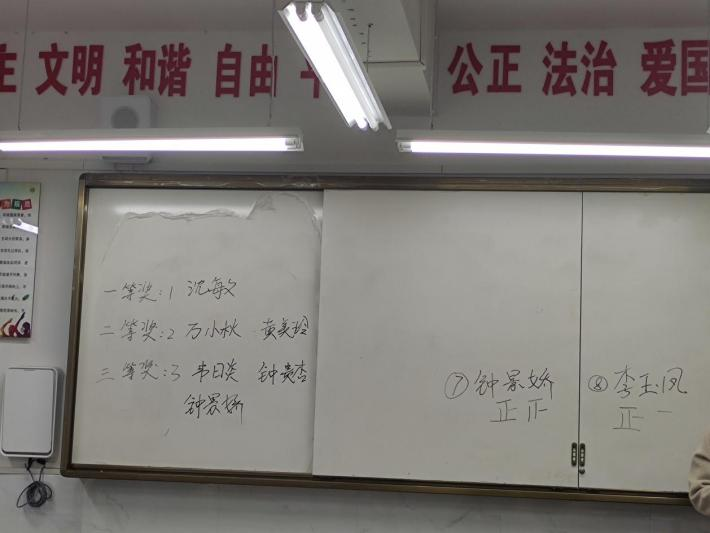 主 文明 和谐 自由 平 公正 法治 爱国
一等奖:1 沈海文
二等奖:2 万小秋 黄美玲
三等奖:3 韦日英 钟贵杏
钟景娇
⑦钟景娇
正正
⑧李玉凤
正一